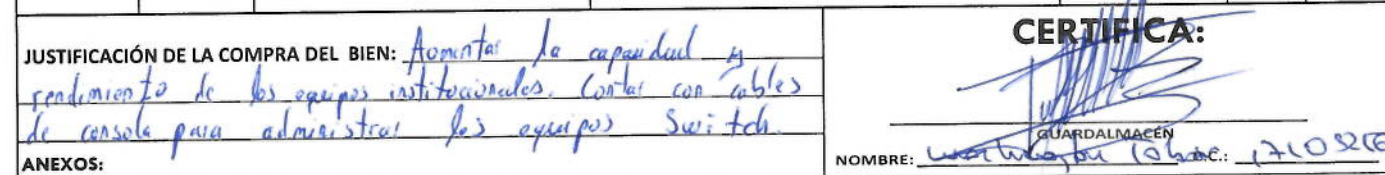 JUSTIFICACIÓN DE LA COMPRA DEL BIEN: Aomentar la capacidad y
rendimiento de los equipos institucionales. Contar con cables
de consola para administrar los equipos Switch.
ANEXOS:
CERTIFICA:
GUARDALMACÉN
NOMBRE: C.: